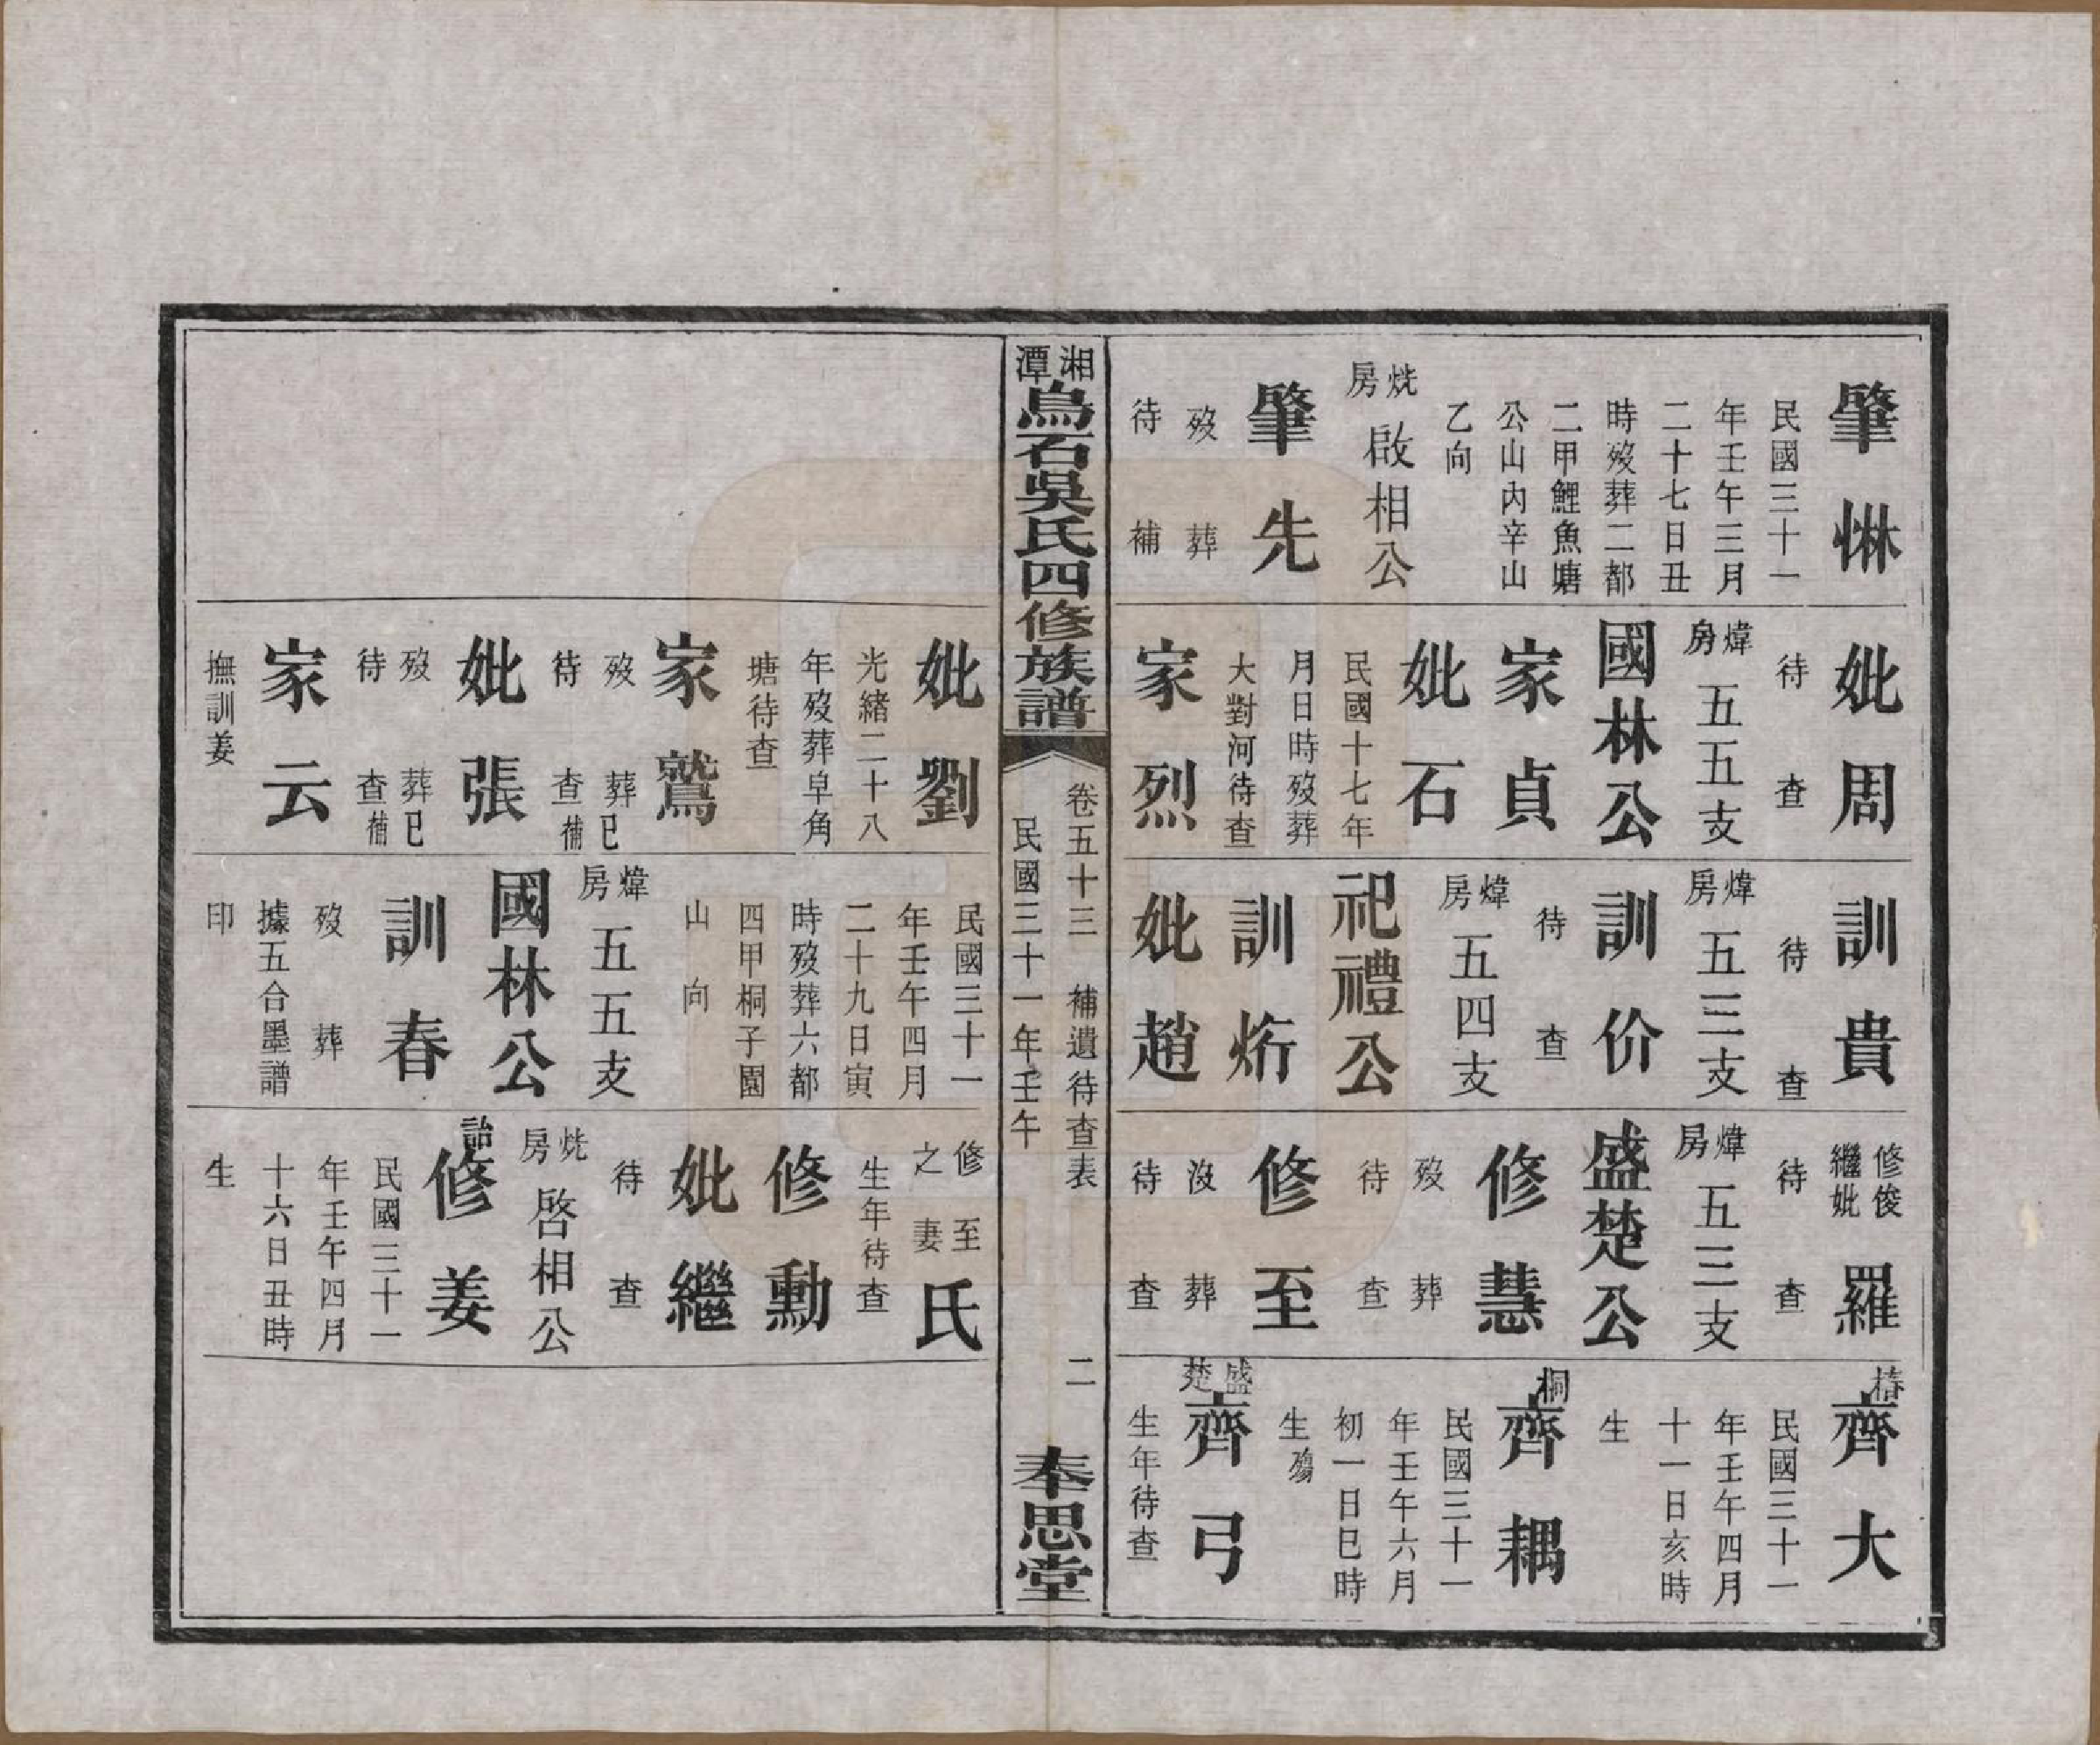 肇惏
民國三十一
年壬午三月
二十七日丑
時歿葬二都
二甲鯉魚塘
公山內辛山
乙向
烑房
啟相公
肇先
歿葬
待補
妣周
待查
煒房
五五支
國林公
家貞
妣石
民國十七年
月日時歿葬
大對河待查
家烈
訓貴
待查
煒房
五三支
訓价
待查
煒房
五四支
祀禮公
訓烆
妣趙
修俊
繼妣
羅
待查
煒房
五三支
盛楚公
修慧
歿葬
待查
修至
沒葬
待查
椿
齊大
民國三十一
年壬午四月
十一日亥時
生
桐
齊耦
民國三十一
年壬午六月
初一日巳時
生殤
盛楚
齊弓
生年待查
湘潭
烏石吳氏四修族譜
卷五十三 補遺待查表
民國三十一年壬午
二
奉思堂
妣劉
光緒二十八
年歿葬皁角
塘待查
家鷲
歿葬已
待查補
妣張
歿葬已
待查補
家云
撫訓姜
民國三十一
年壬午四月
二十九日寅
時歿葬六都
四甲桐子園
山向
煒房
五五支
國林公
訓春
歿葬
據五合墨譜
印
修至
之妻
氏
生年待查
修勳
妣繼
待查
烑房
啓相公
詒
修姜
民國三十一
年壬午四月
十六日丑時
生